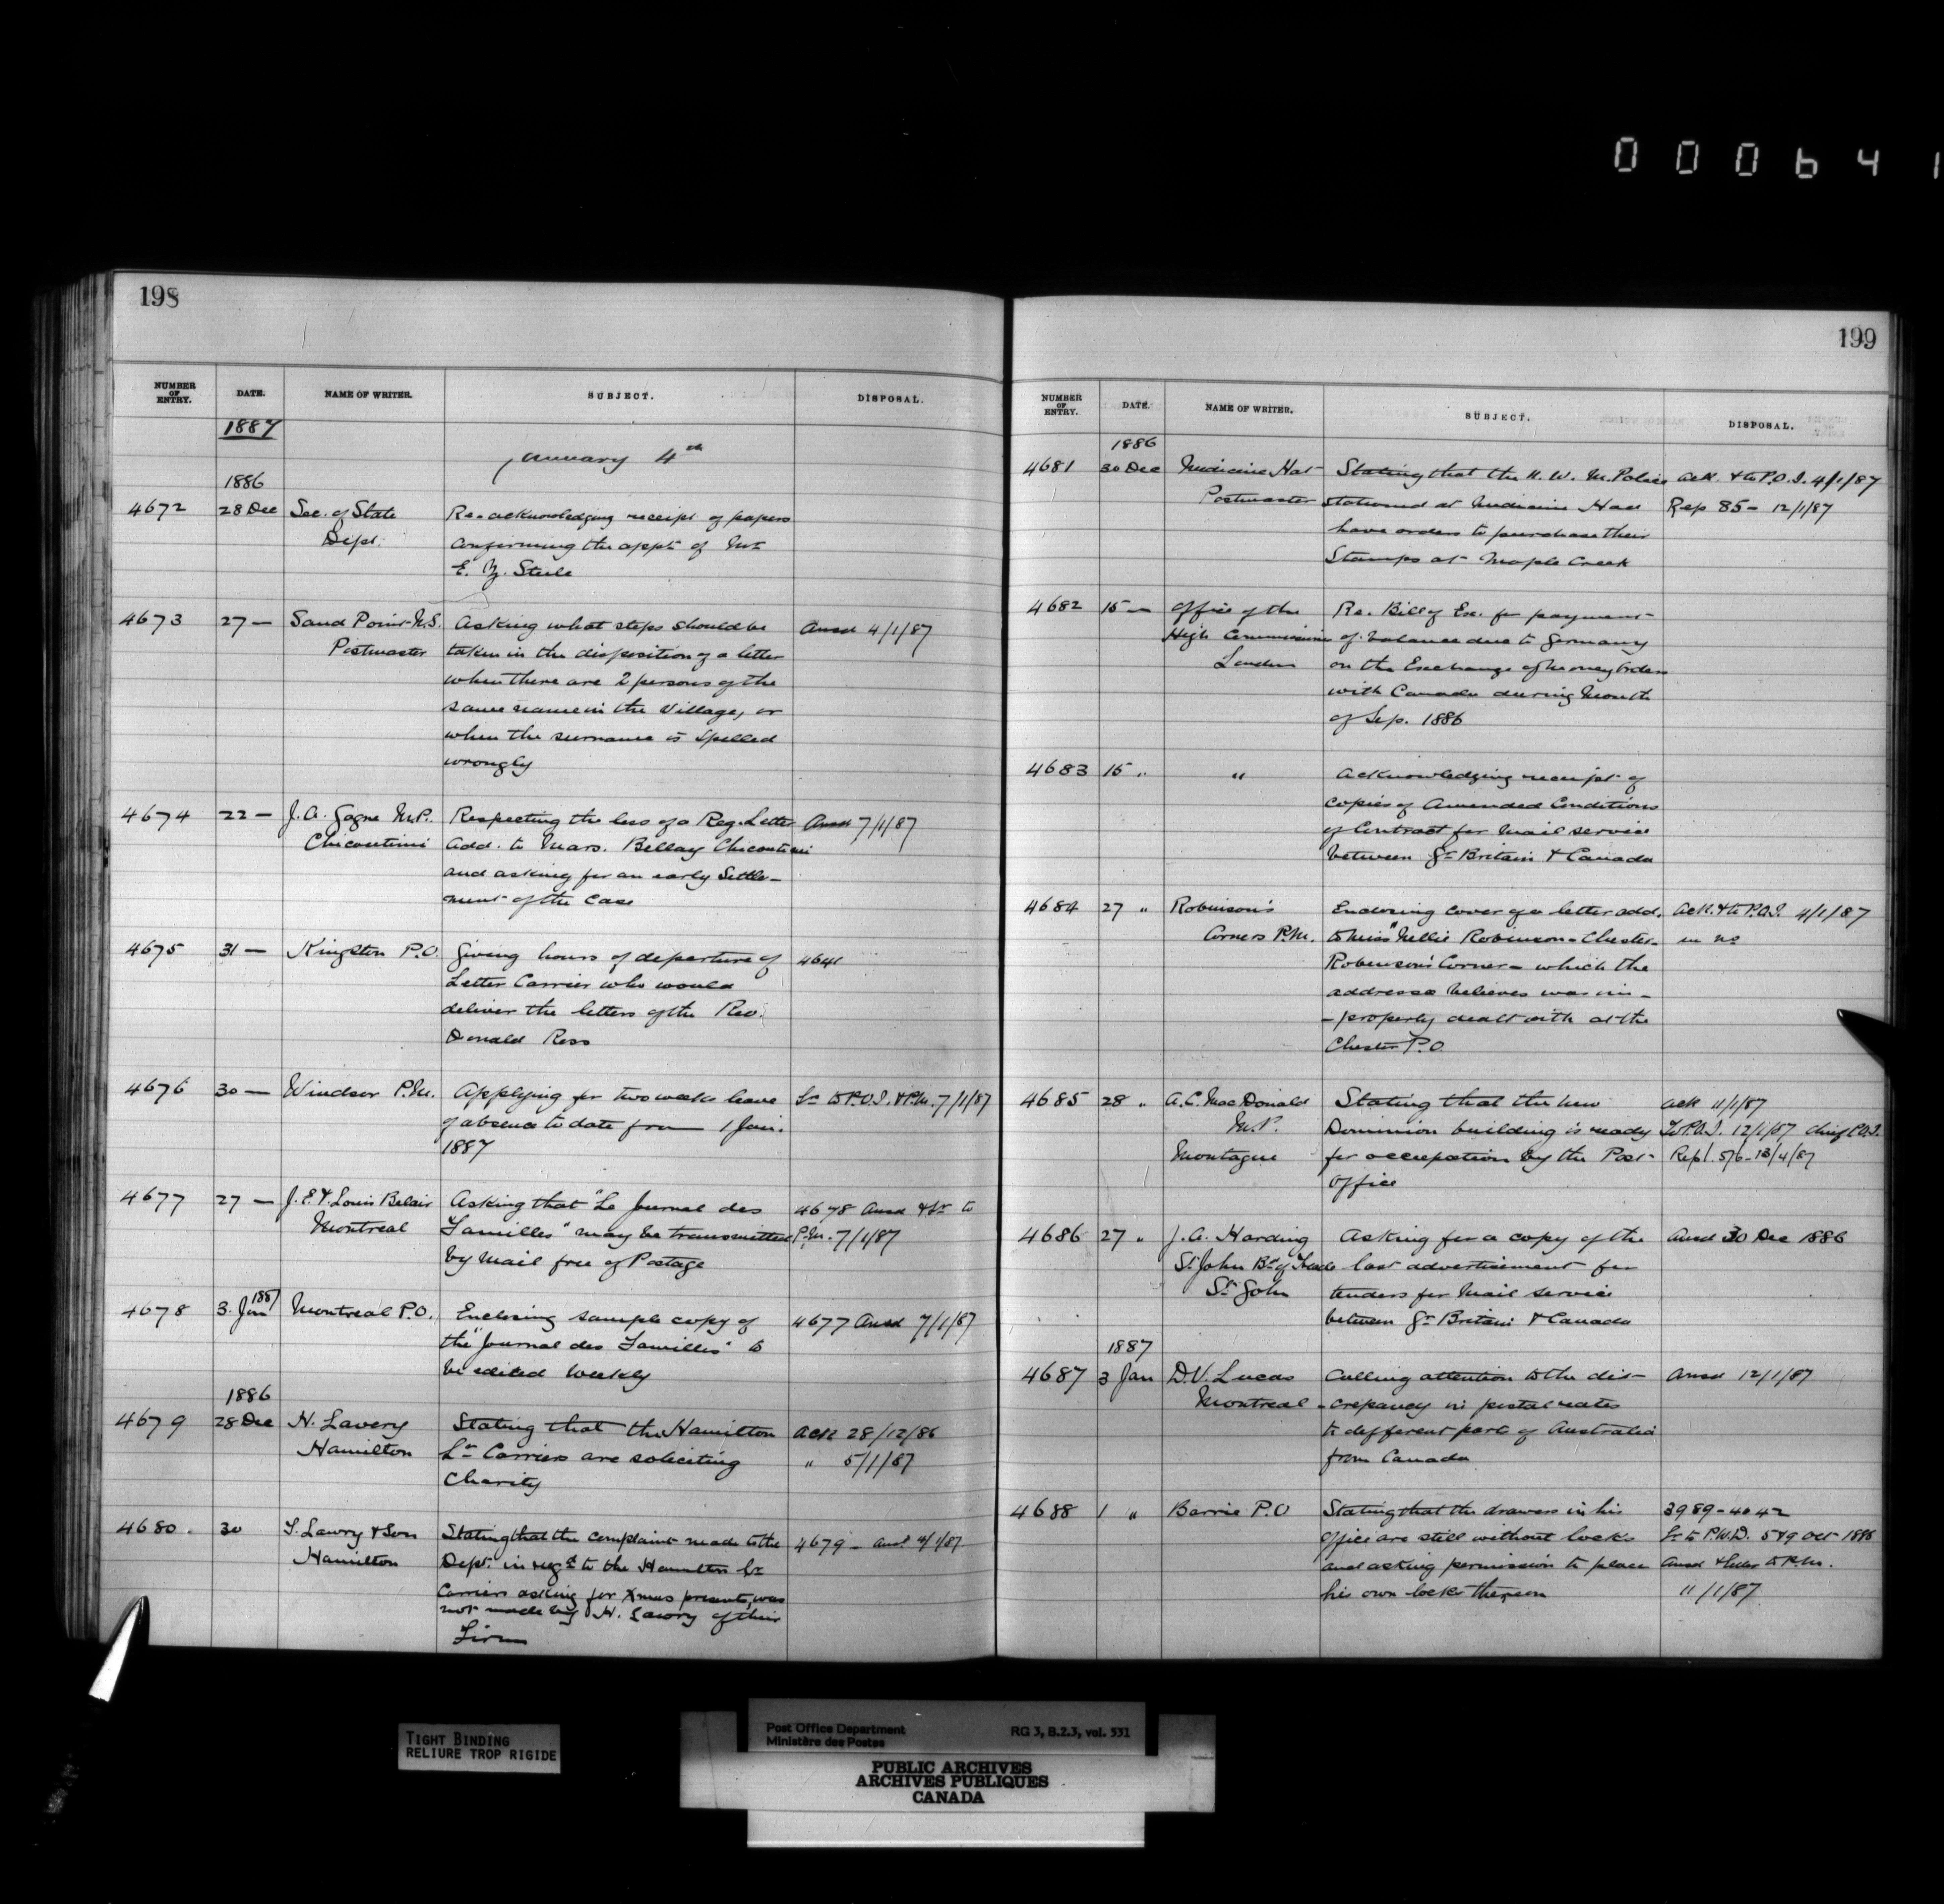 000641
198
NUMBER OF ENTRY. DATE. NAME OF WRITER. SUBJECT. DISPOSAL.
1887
January 4th
1886
4672 28 Dec Sec. of State Re-acknowledging receipt of papers
Dept. confirming the appt of Mr
E. Steele
4673 27 — Sand Point N.S. Asking what steps should be Ansd 4/1/87
Postmaster taken in the disposition of a letter
when there are 2 persons of the
same name in the Village, or
when the surname is spelled
wrongly
4674 22 — J. A. Gagne M.P. Respecting the loss of a Reg. Letter Ansd 7/1/87
Chicoutimi add. to Mars. Bellay Chicoutimi
and asking for an early Settle-
ment of the Case
4675 31 — Kingston P.O. Giving hours of departure of 4641
Letter Carrier who would
deliver the letters of the Rev.
Donald Ross
4676 30 — Windsor P.M. Applying for two weeks leave Lr to P.O.I. & P.M. 7/1/87
of absence to date from 1 Jan.
1887
4677 27 — J. E. & Louis Belair Asking that "Le Journal des 4678 Ansd & Lr to
Montreal Familles" may be transmitted P.M. 7/1/87
by Mail free of Postage
4678 3 Jan 1887 Montreal P.O. Enclosing sample copy of 4677 Ansd 7/1/87
the "Journal des Familles" to
be edited Weekly
1886
4679 28 Dec H. Lavery Stating that the Hamilton Ack 28/12/86
Hamilton Lr Carriers are soliciting " 5/1/87
Charity
4680. 30 T. Lawry & Son Stating that the complaint made to the 4679 — Ansd 11/1/87
Hamilton Dept. in regd to the Hamilton Lr
Carriers asking for Xmas presents, was
not made by H. Lawry of their
Firm
199
NUMBER OF ENTRY. DATE. NAME OF WRITER. SUBJECT. DISPOSAL.
1886
4681 30 Dec Medicine Hat Stating that the N. W. M. Police Ack. & to P.O.I. 4/1/87
Postmaster stationed at Medicine Hat Rep 85 — 12/1/87
have orders to purchase their
Stamps at Maple Creek
4682 15 — Office of the Re. Bill of Ex. for payment
High Commissioner of balance due to Germany
London on the Exchange of Money Orders
with Canada during Month
of Sep. 1886
4683 15 " " Acknowledging receipt of
copies of Amended Conditions
of Contract for Mail service
between Gt Britain & Canada
4684 27 " Robinson's Enclosing cover of a letter add. Ack. & to P.O.I. 4/1/87
Corners P.M. to Miss "Nellie Robinson - Chester- in
Robinson's Corner — which the
addressee believes was im-
-properly dealt with at the
Chester P.O
4685 28 " A. C. MacDonald Stating that the new Ack 11/1/87
M.P. Dominion building is ready To P.O.I. 12/1/87 Chief P.O.I.
Montague for occupation by the Post- Rep. 576 - 13/4/87
Office
4686 27 " J. A. Harding Asking for a copy of the Ansd 30 Dec 1886
St John Bd of Trade last advertisement for
St John tenders for Mail service
between Gt Britain & Canada
1887
4687 3 Jan D. V. Lucas Calling attention to the dis- Ansd 12/1/87
Montreal -crepancy in postal rates
to different parts of Australia
from Canada
4688 1 " Barrie P.O Stating that the drawers in his 3989 - 4042
Office are still without locks Lr to P.W.D. 5 & 9 Oct 1886
and asking permission to place Ansd & to P.M.
his own locks thereon 11/1/87
TIGHT BINDING
RELIURE TROP RIGIDE
Post Office Department RG 3, B.2.3, vol. 331
Ministère des Postes
PUBLIC ARCHIVES
ARCHIVES PUBLIQUES
CANADA